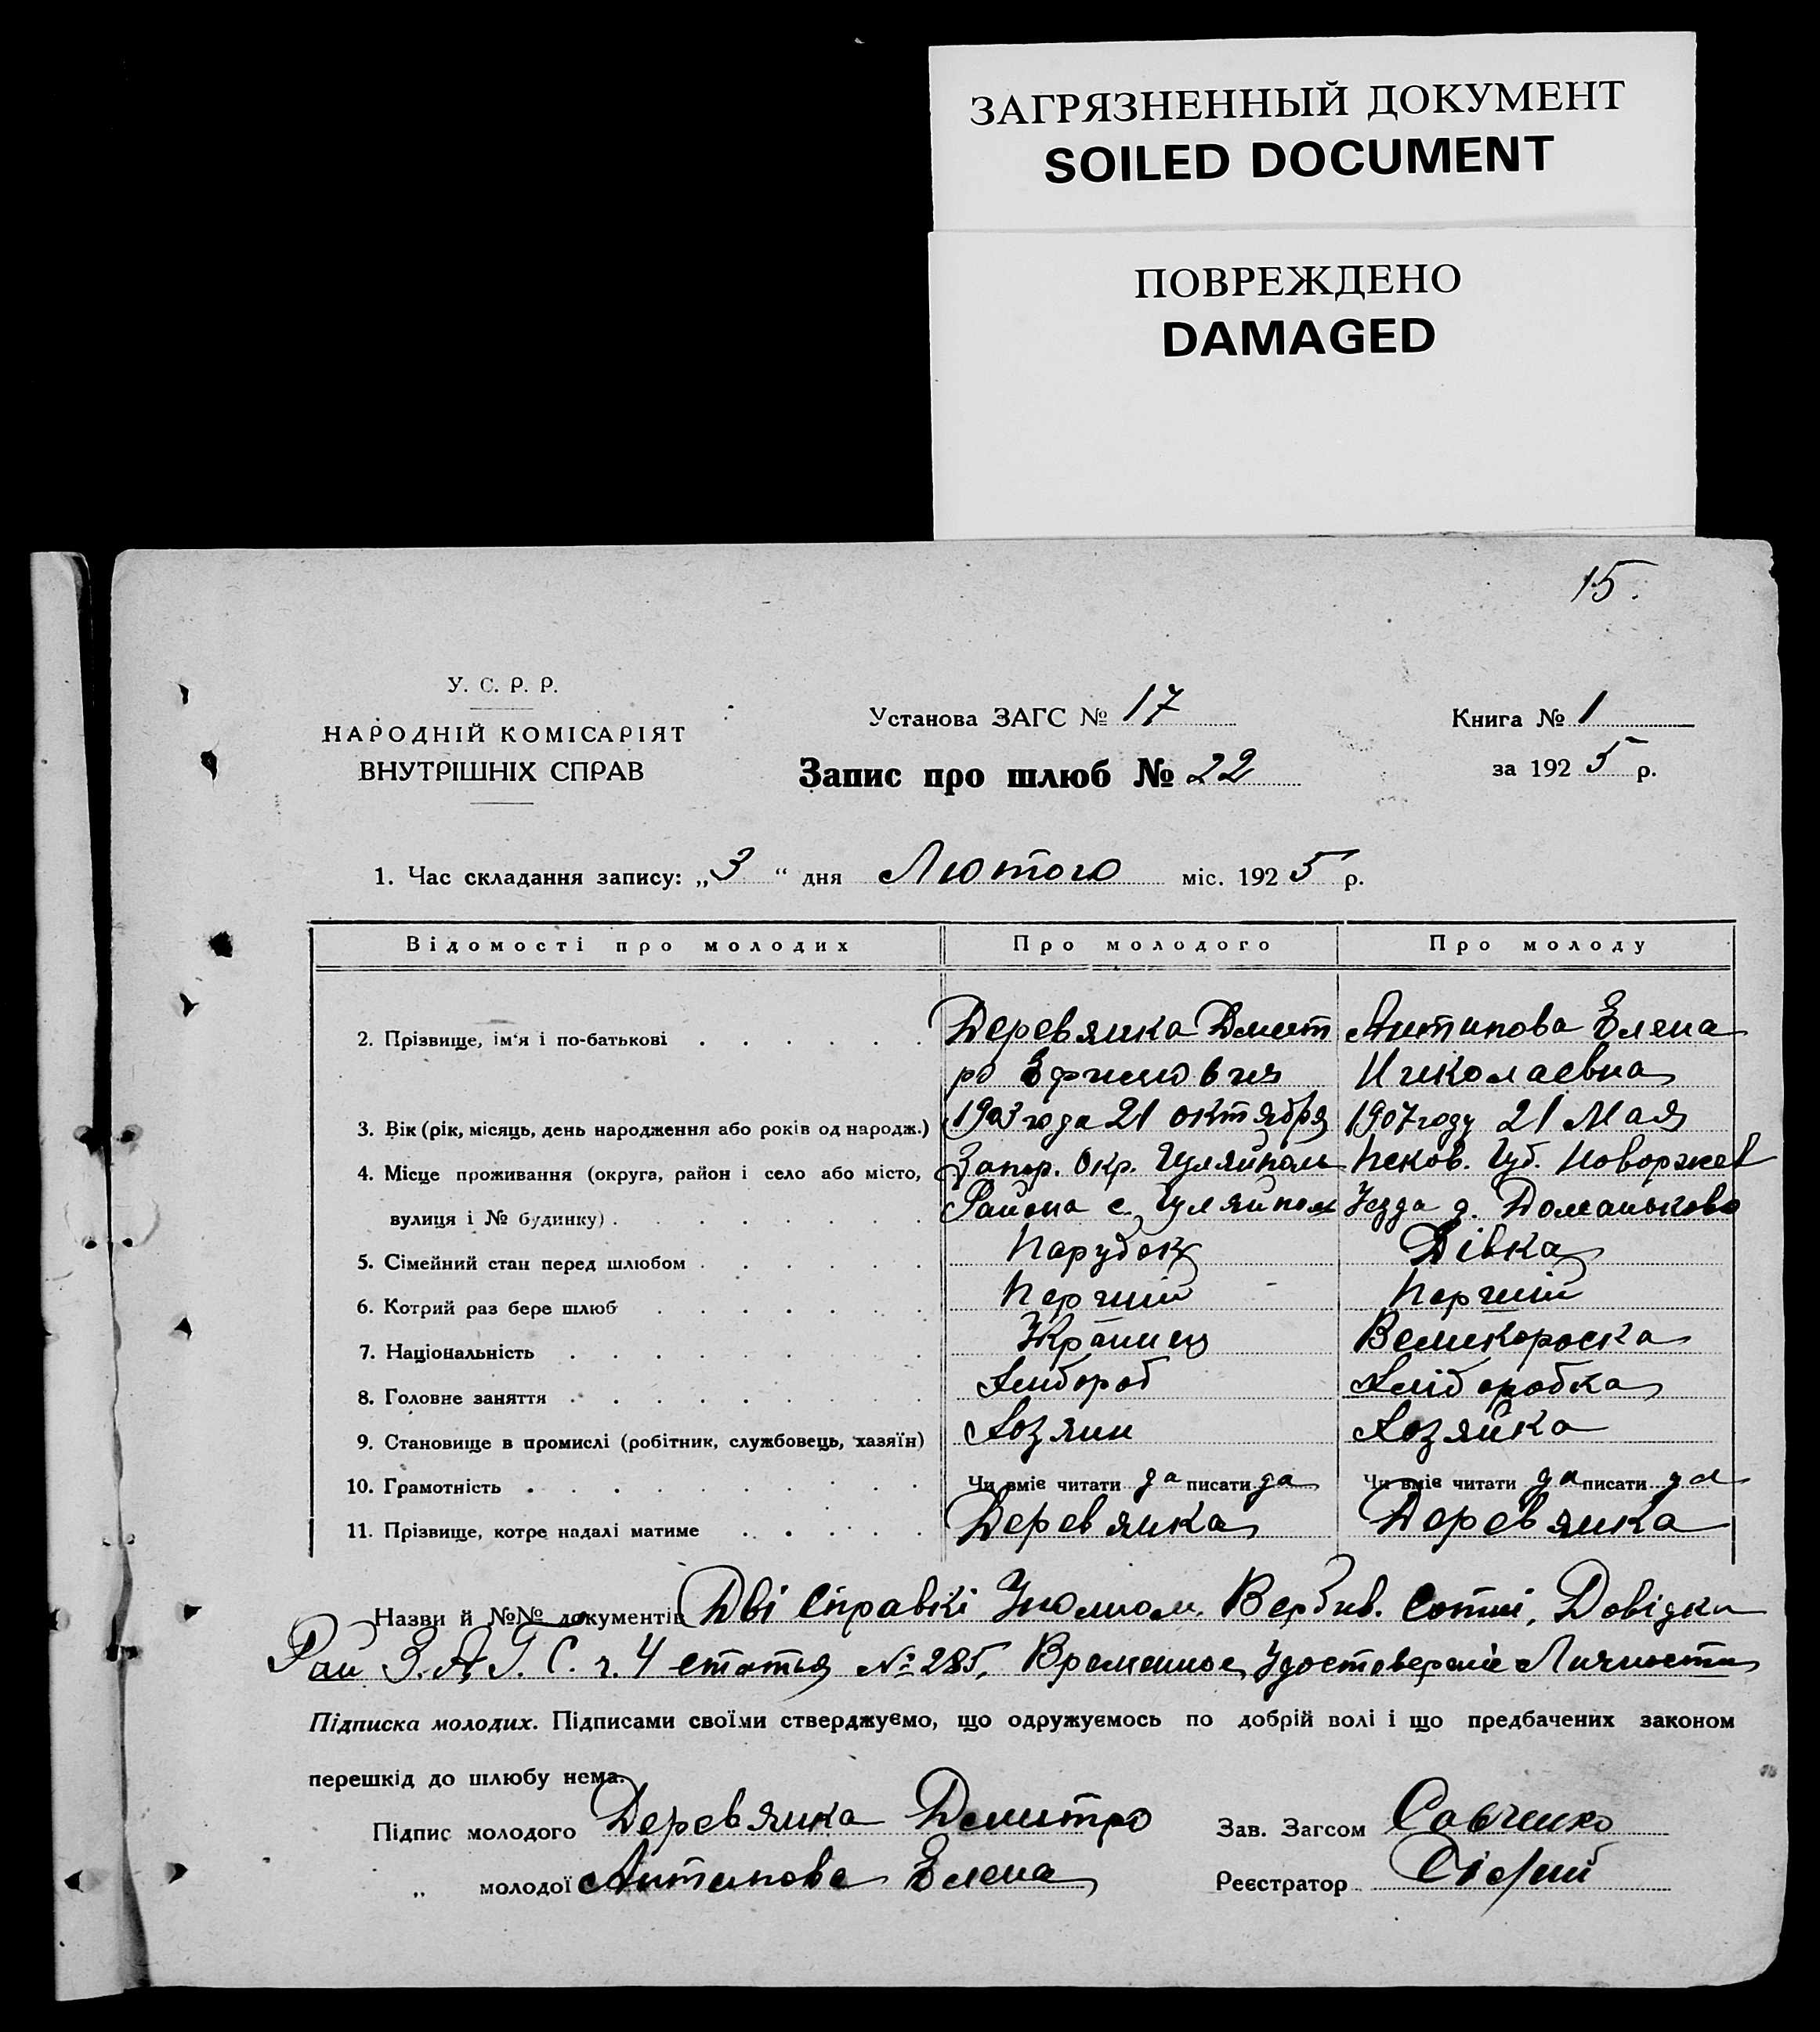 ЗАГРЯЗНЕННЫЙ ДОКУМЕНТ
SOILED DOCUMENT
ПОВРЕЖДЕНО
DAMAGED
15.
У. С. Р. Р.
НАРОДНІЙ КОМІСАРІЯТ
ВНУТРІШНІХ СПРАВ
Установа ЗАГС № 17
Книга № 1
Запис про шлюб № 22
за 1925 р.
1. Час складання запису: „3“ дня Лютого міс. 1925 р.
Відомості про молодих Про молодого Про молоду
2. Прізвище, ім'я і по-батькові Деревянка Дмит Антипова Елена
ро Ефимович Николаевна
3. Вік (рік, місяць, день народження або років од народж.) 1903 года 21 октября 1907 году 21 Мая
4. Місце проживання (округа, район і село або місто, Запор. Окр. Гуляйполь Псков. Губ. Новоржев
вулиця і № будинку) Района с. Гуляйполе Уезда д. Доманьково
5. Сімейний стан перед шлюбом Парубок Дівка
6. Котрий раз бере шлюб Перший Перший
7. Національність Украинец Великороска
8. Головне заняття Хлибороб Хліборобка
9. Становище в промислі (робітник, службовець, хазяїн) Хозяин Хозяйка
10. Грамотність Чи вміє читати да писати да Чи вміє читати да писати да
11. Прізвище, котре надалі матиме Деревянка Деревянка
Назви й №№ документів Дві Справкі Вербив. Сотні, Довідки
Рай З.А.Г.С. ч. 4 статья № 285, Временное Удостоверение Личности
Підписка молодих. Підписами своїми стверджуємо, що одружуємось по добрій волі і що предбачених законом
перешкід до шлюбу нема.
Підпис молодого Деревянка Дмитро Зав. Загсом Савченко
„ молодої Антипова Елена Реєстратор